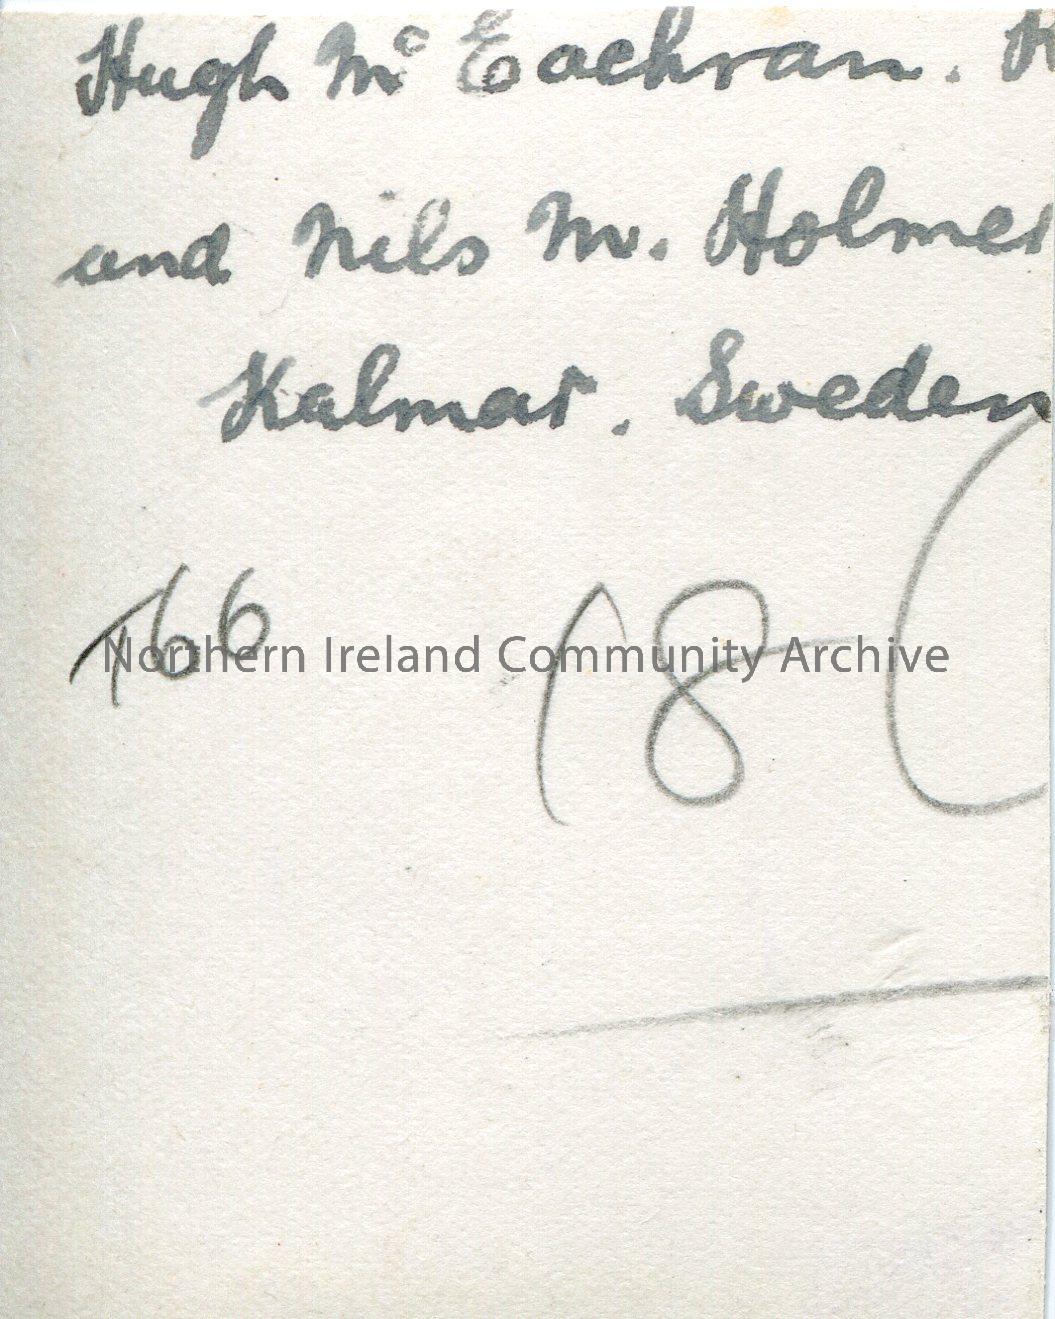 Hugh Mc Eachran. K
and Nils M. Holmer
Kalmar. Sweden
T66 (8
Northern Ireland Community Archive